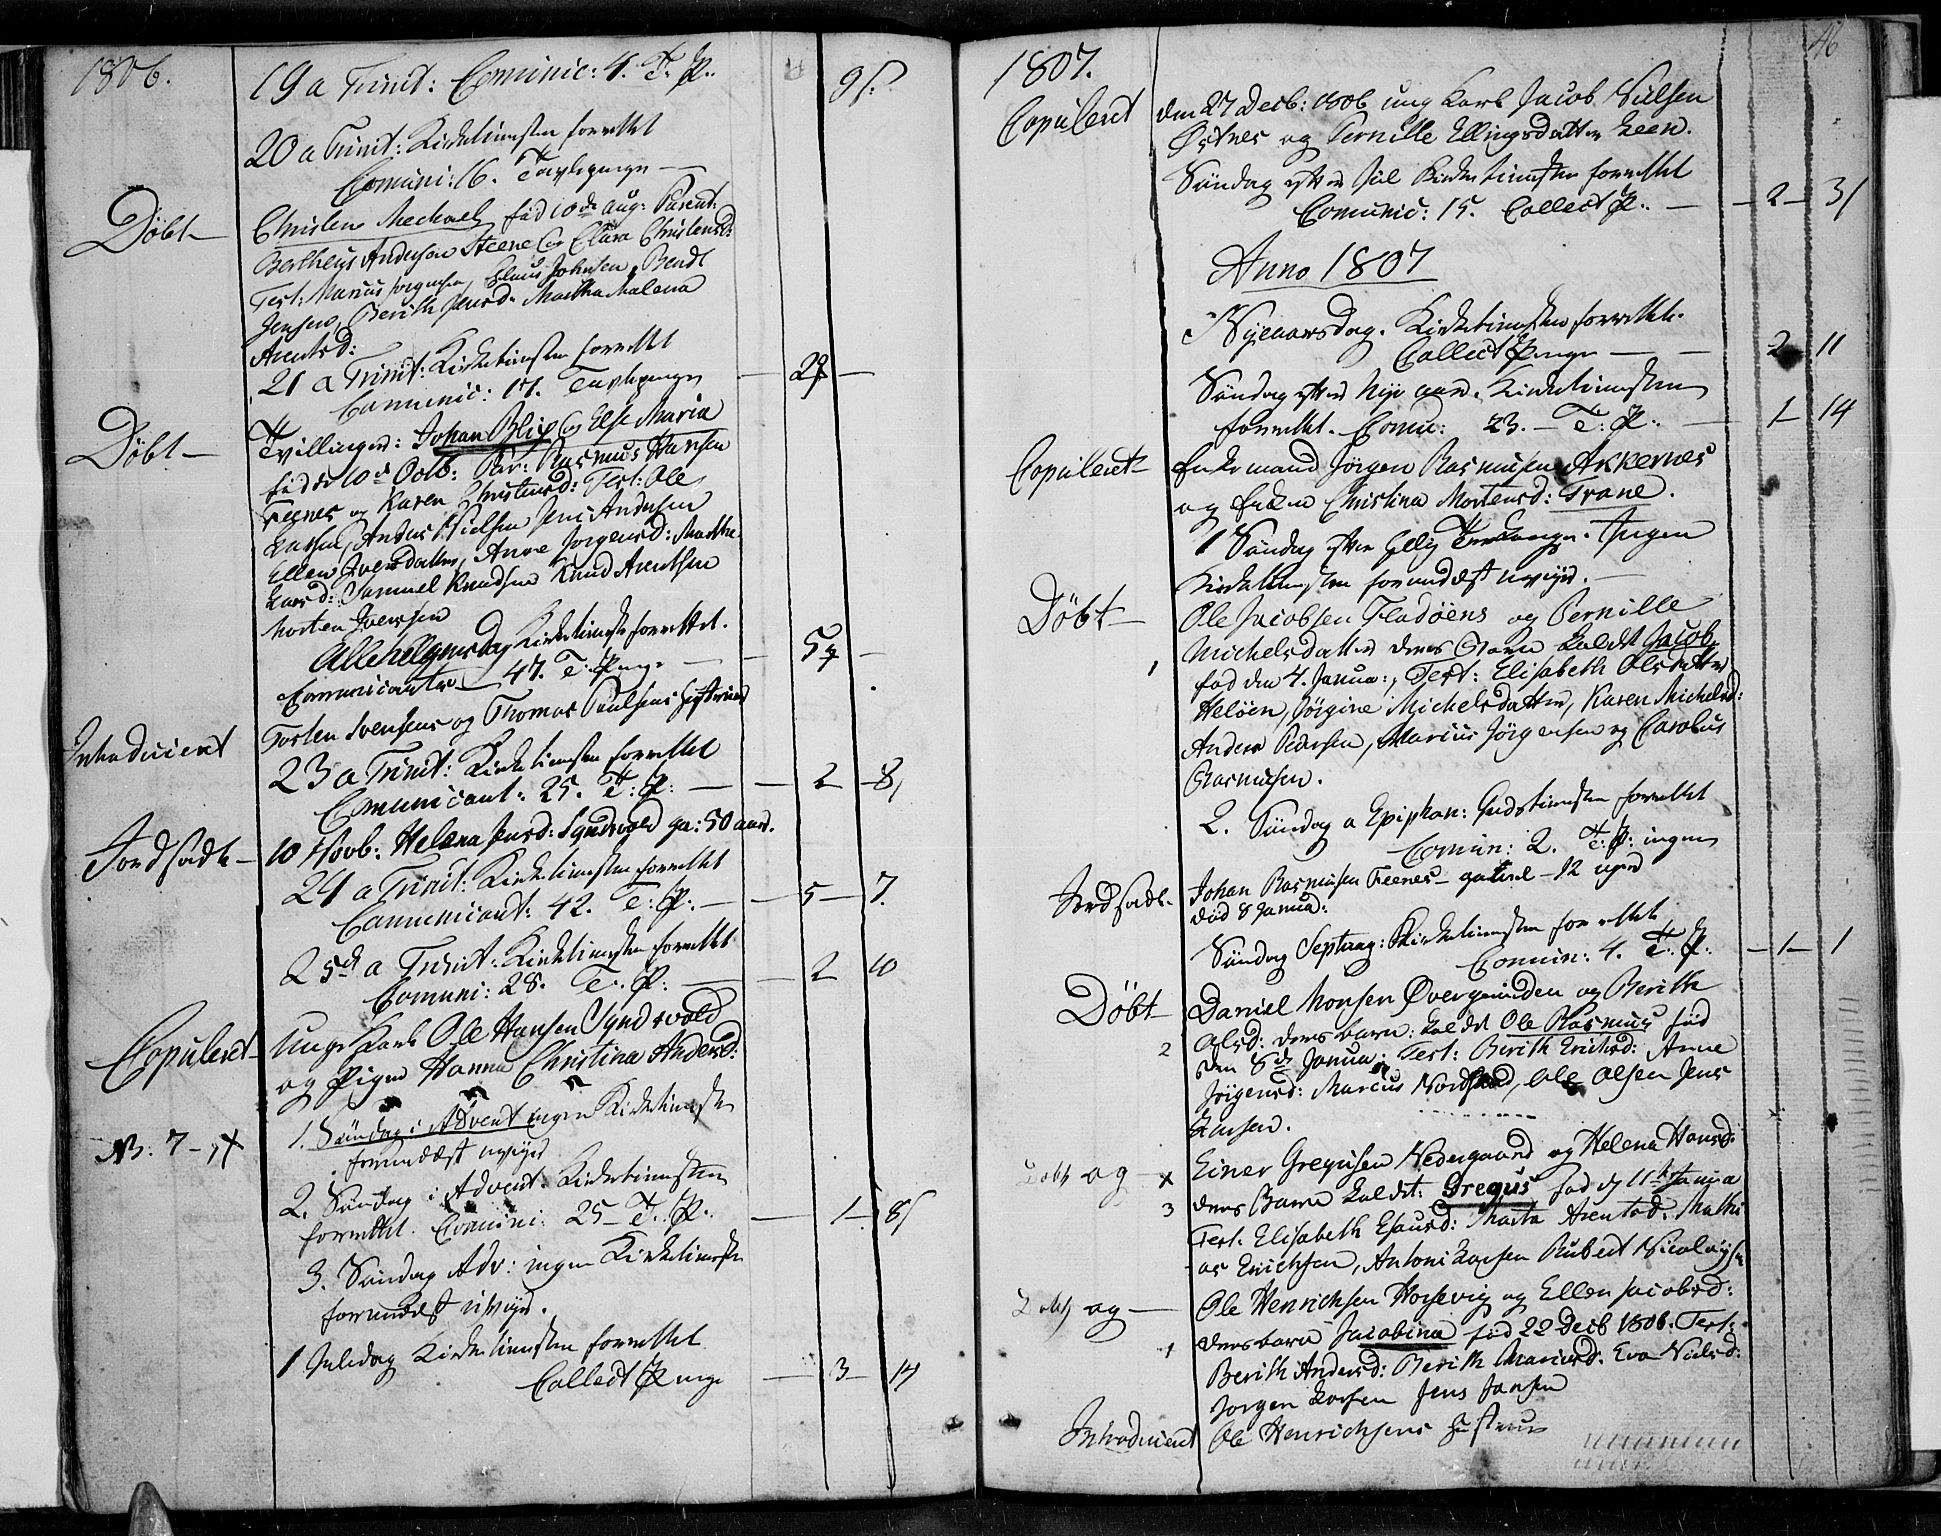 1806.
19 a Trinit: Cominic: 4. T. P.. 9 ʃ.
20 a Trinit: Kirketienesten forrettet
Comuni: 16. Tavlepenge —
Döbt — Christen Mechael fød 10de Aug: Parent:
Bertheus Andersen Steene og Clara Christensd:
Test: Marius Jørgensen, Claus Johnsen, Bendt
Jensen, Berith Jensd: Martha Malena
Arentsd:
21 a Trinit: Kirketienesten forrettet
Comunic: 17. Tavlepenge — 2
Döbt — Tvillinger: Johan Blix og Else Maria
fødde 10de Octb: Par: Rasmus Hansen
Feenes og Karen Christensd: Test: Ole
Larsen, Anders Nielsen Jens Andersen
Ellen Iversdatter, Anne Jørgensd: Martha
Larsd: Samuel Knudsen Knud Arentsen
Morten Iversen
Allehelgensdag Kirketieneste forrettet.
Communicanter — 47. T: Penge — 5
Introduceret Torsten Svensens og Thomas Poulsens Hustruer
23 a Trinit: Kirketienesten forrettet
Comunicant: 25. T: P: — 2 — 8
Jordfæste — 10 Novb: Helena Jensd: Syndsvold ga: 50 aar.
24 a Trinit: Kirketienesten forrettet
Communicant: 42. T: P: — 5 — 7
25de a Trinit: Kirketienesten forrettet
Comuni: 28. T. P: — 2 10
Copuleret — Unge Karl Ole Hansen Syndsvold
og Pigen Hanna Christina Andersd:
1. Søndag i Advent ingen Kirketieneste
NB: 7 — formedelst uveyr
2. Søndag i Advent Kirketienesten
forrettet. Comuni: 25 — T. P.. — 1 — 8
3. Søndag Adv: ingen Kirketieneste
formedelst uveyr.
1 Juledag Kirketienesten forrettet
Collect Penge — 3 — 14
46
1807.
Copuleret den 27 Decb: 1806 ung Karl Jacob Nielsen
Østnes og Pernille Ellingsdatter Leen.
Søndag efter Jul Kirketienesten forrettet
Comunic: 15. Collect P.. — 2 — 3
Anno 1807
Nyeaarsdag. Kirketienesten forrettet.
Collect Penge — 2 11
Søndag efter Nye aar. Kirketienesten
forrettet. Comu: 23. — T: P.. — 1 — 14
Copuleret — Enkemand Jörgen Rasmusen Akkernes
og Enken Christina Mortensd: Trane.
1 Søndag efter Hellig Trekonger. Ingen
Kirketienesten formedelst uveyr. —
Döbt — Ole Jacobsen Fladöens og Pernille
Michelsdatter deres Barn kaldet Jacob
1 fød den 4. Janua:, Test: Elisabeth Olsdatter
Helöen, Jörgine Michelsdatter, Karen Michelsd:
Anders Pedersen, Marius Jörgensen og Carolus
Rasmusen.
2. Søndag a Epiphan: Gudstienesten forrettet
Comun: 2. T: P: ingen
Jordfæst. Johan Rasmusen Feenes — gammel — 12 uger
død 8 Janua:
Søndag Septuag: Kirketienesten forrettet
Comun: 4. T. P. — 1 — 1
Döbt — Daniel Monsen Övergaarden og Berith
Olsd: deres barn: kaldet Ole Rasmus fød
2 den 8de Janua: Test: Berith Erichsd: Anne
Jörgensd: Marcus Nordsand, Ole Olsen Jens
Larsen.
Döbt og — x Einer Gregusen Nedergaard og Helena Hansd:
3 deres Barn kaldet: Gregus fød d 11te Janua
Test. Elisabeth Esausd: Marta Arentsd: Mathi
as Erichsen, Antoni Larsen Rubert Nicolaysen
Döbt og — Ole Henrichsen Horsevig og Ellen Jacobsd:
1 deres barn Jacobina fød 22 Decb 1806. Test:
Berith Andersd: Berith Mariusd: Eva Nielsd:
Jorgen Larsen Jens Jansen
Introduceret Ole Henrichsens Hustrue